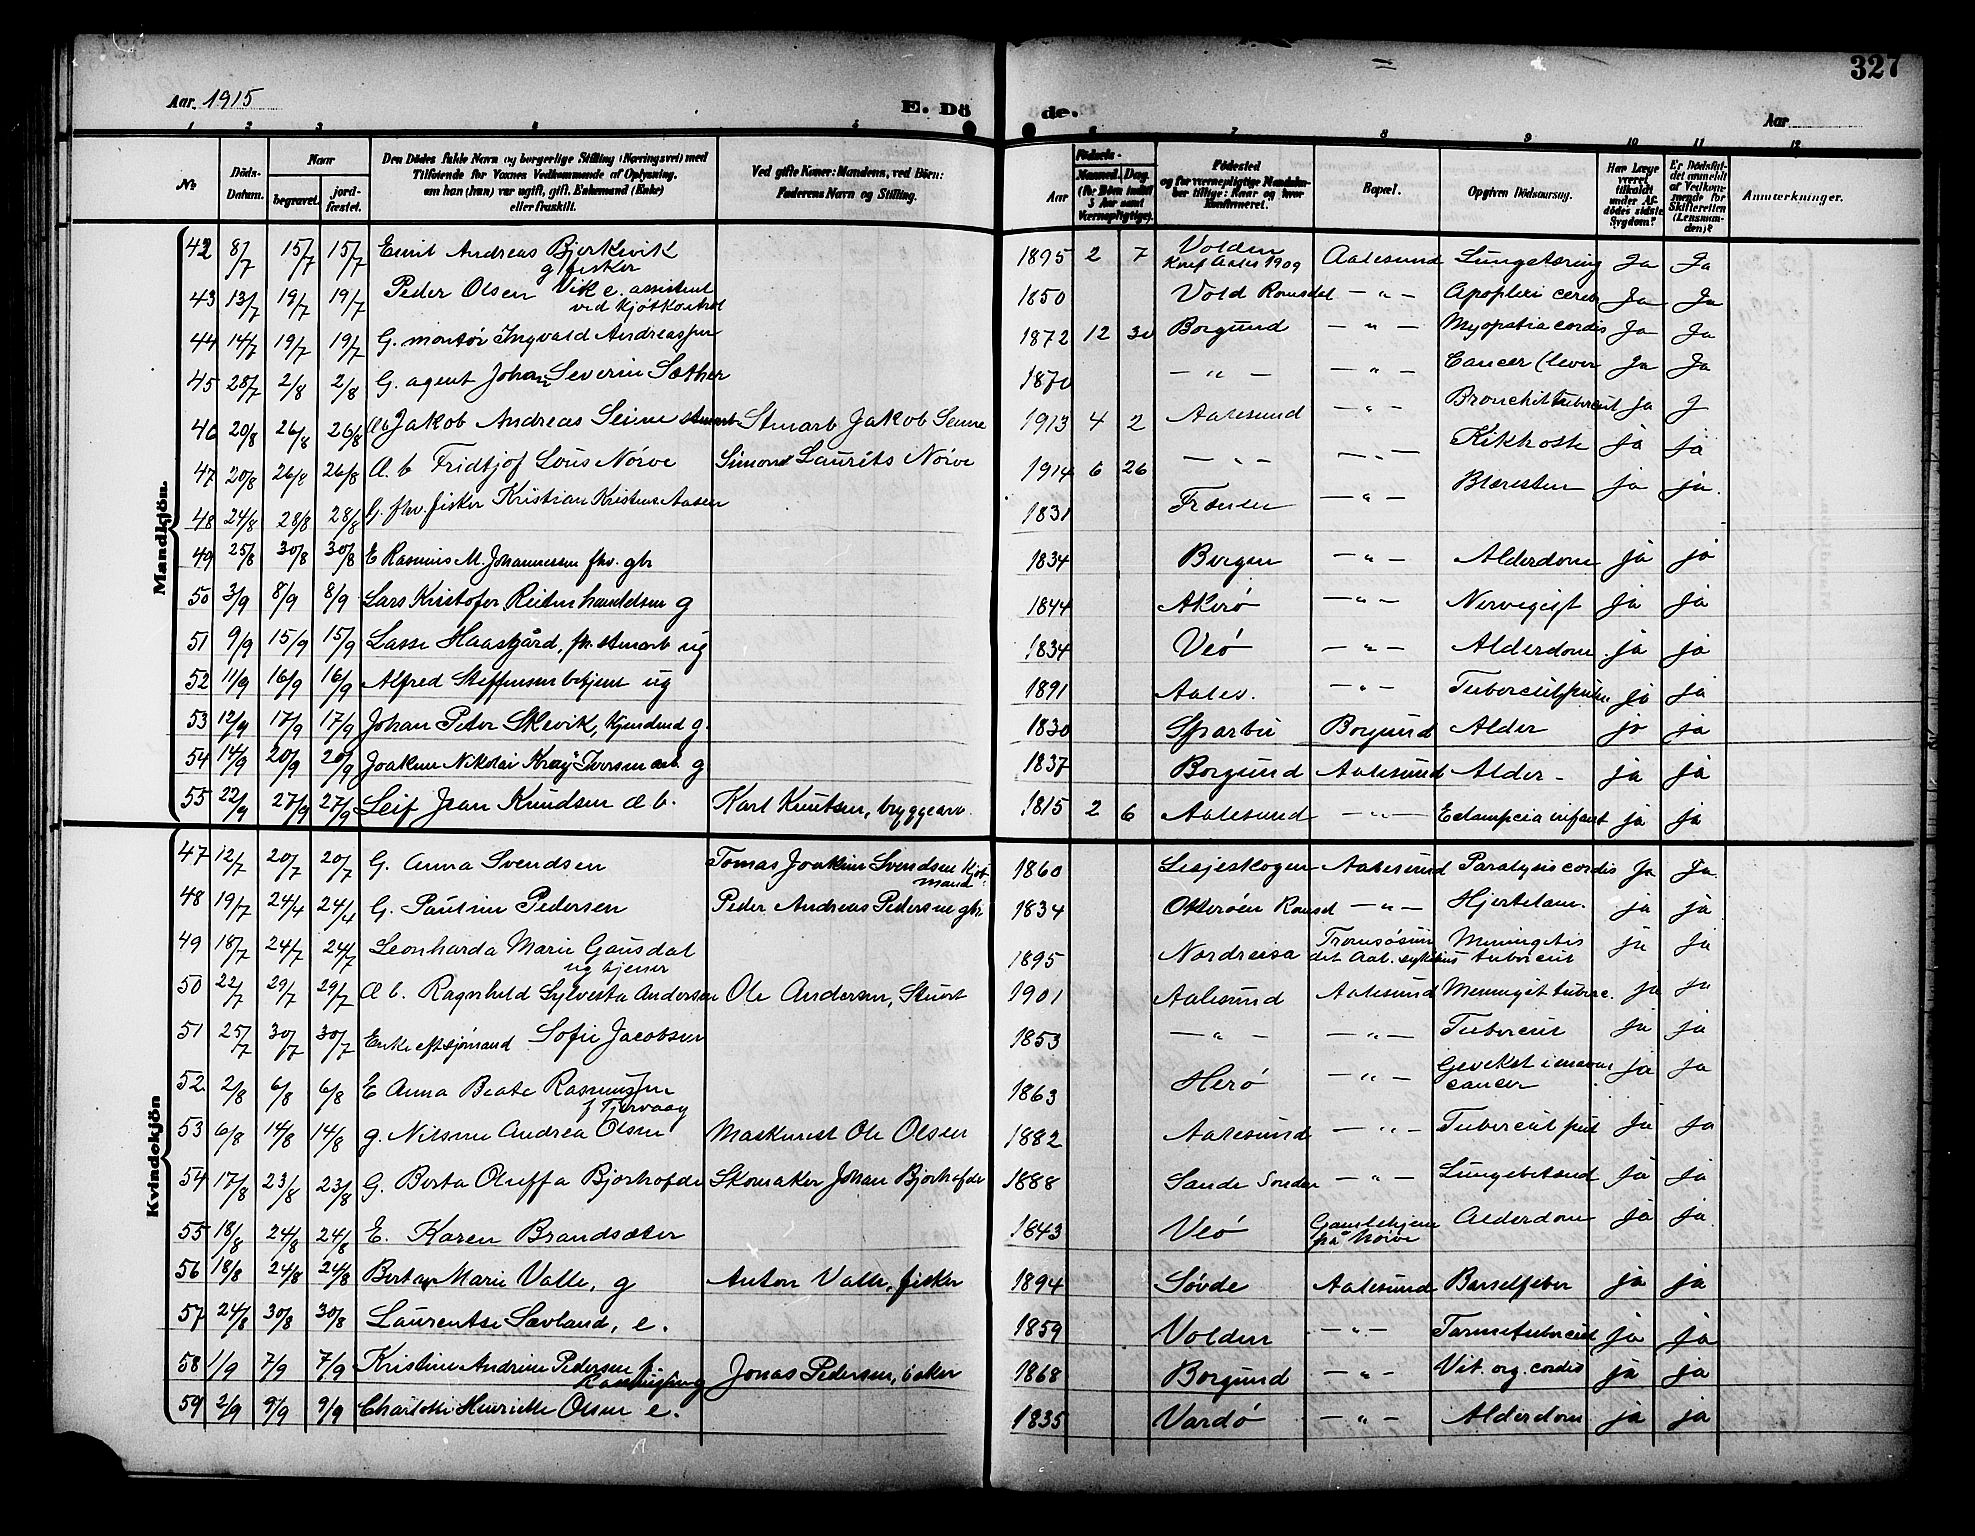 327
Aar 1915
E. Dö de.
Aar
1 2 3 5 4 6 7 8 9 10 11 12
№ Döds-Datum. Naar begravet. jordfæstet. Den Dödes fulde Navn og borgerlige Stilling (Næringsvei) med Tilföiende for Voxnes Vedkommende af Oplysning, om han (hun) var ugift, gift, Enkemand (Enke) eller fraskilt. Ved gifte Koner: Mandens, ved Börn: Faderens Navn og Stilling. Födsels- Aar Maaned Dag (for Börn indtil 5 Aar samt Værnepligtige). Födested og for værnepligtige Mandskaber tillige: Naar og hvor Konfirmeret. Bopæl. Opgiven Dödsaarsag. Har Læge været tilkaldt under Afdödes sidste Sygdom? Er Dödsfaldet anmeldt af Vedkommende for Skifteretten (Lensmanden)? Anmærkninger.
Mandkjön.
42 8/7 15/7 15/7 Emil Andreas Bjorkevik g fisker 1895 2 7 Volden Konf Aales 1909 Aalesund Lungetæring Ja Ja
43 13/7 19/7 19/7 Peder Olsen Vik e. assistent ved kjøtkontrol 1850 Vold Romsdal — " — Apoplexi cereb Ja Ja
44 14/7 19/7 19/7 G. montør Ingvald Andreassen 1872 12 30 Borgund — " — Myopatia cordis Ja Ja
45 28/7 2/8 2/8 G. agent Johan Severin Sæther 1870 — " — — " — Cancer (lever Ja Ja
46 20/8 26/8 26/8 Jakob Andreas Seime Stuarb Jakob Seime 1913 4 2 Aalesund — " — Bronchit tubercul Ja J
47 20/8 26/8 26/8 A. b Fridtjof Louis Nörve Simond Laurits Nörve 1914 6 26 — " — — " — Kikhoste ja ja
48 24/8 28/8 28/8 G. fhv. fisker Kristian Kristens. Aasen 1831 Frænen — " — Blæresten ja ja.
49 25/8 30/8 30/8 E Rasmus M. Johannessen fhv. gbr 1834 Bergen — " — Alderdom ja ja
50 3/9 8/9 8/9 Lars Kristofer Reiten handelsm g 1844 Akerø — " — Nervegigt ja ja
51 9/9 15/9 15/9 Lasse Haasgård, fh. stuarb ug 1834 Veö — " — Alderdom ja ja
52 11/9 16/9 16/9 Alfred Steffensen betjent ug 1891 Aales. — " — Tubercul pulm ja ja
53 12/9 17/9 17/9 Johan Peter Skevik, g. 1830 Sparbu Borgund Alder ja ja
54 14/9 20/9 20/9 Joakim Nikolai Iversen arb g 1837 Borgund Aalesund Alder — ja ja
55 22/9 27/9 27/9 Leif Jean Knudsen æ b. Karl Knutsen, bryggearb. 1815 2 6 Aalesund — " — Eclampcia infant ja ja
Kvindekjön
47 12/7 20/7 20/7 G. Anna Svendsen Tomas Joakim Svendsen Kjøbmand 1860 Lesjeskogen Aalesund Paralysis cordis Ja Ja.
48 19/7 24/4 24/4 G. Pauline Pedersen Peder Andreas Pedersen gbr 1834 Otterøen Romsd — " — Hjertelam. ja ja
49 18/7 24/7 24/7 Leonharda Marie Gausdal ug tjener 1895 Nordreisa Tromsøsundet Aal. sykehus Meningetis tubercul ja ja
50 22/7 29/7 29/7 Æ b. Ragnhild Sylvesta Andersen Ole Andersen, Stuarb 1901 Aalesund Aalesund Meninget tuberc. ja ja
51 25/7 30/7 30/7 Enke eft sjømand Sofie Jacobsen 1853 — " — — " — Tubercul ja ja
52 2/8 6/8 6/8 E Anna Beate Rasmussen f Tjervaag 1863 Herö — " — cancer ja ja
53 6/8 14/8 14/8 g. Nilsine Andrea Olsen Maskinist Ole Olsen 1882 Aalesund — " — Tubercul pul Ja Ja
54 17/8 23/8 23/8 G. Berta Oluffa Bjorhofde Skomaker Johan Bjorhofde 1888 Sande Søndm — " — Lungebetænd Ja ja
55 18/8 24/8 24/8 E. Karen Brandsæter 1843 Veö Gamlehjem på Nörve Alderdom ja ja
56 18/8 24/8 24/8 Berta Marie Valle, g Anton Valle, fisker 1894 Sövde Aalesund Barselfeber ja ja
57 24/8 30/8 30/8 Laurentse Sævland, e. 1859 Volden — " — Tarmtubercul ja ja
58 1/9 7/9 7/9 Kristine Andrine Pedersen f. Jonas Pedersen, 1868 Borgund — " — Vit. org. cordis ja ja
59 2/9 9/9 9/9 Charlotte Henriette Olsen e. 1835 Vardö — " — Alderdom ja ja